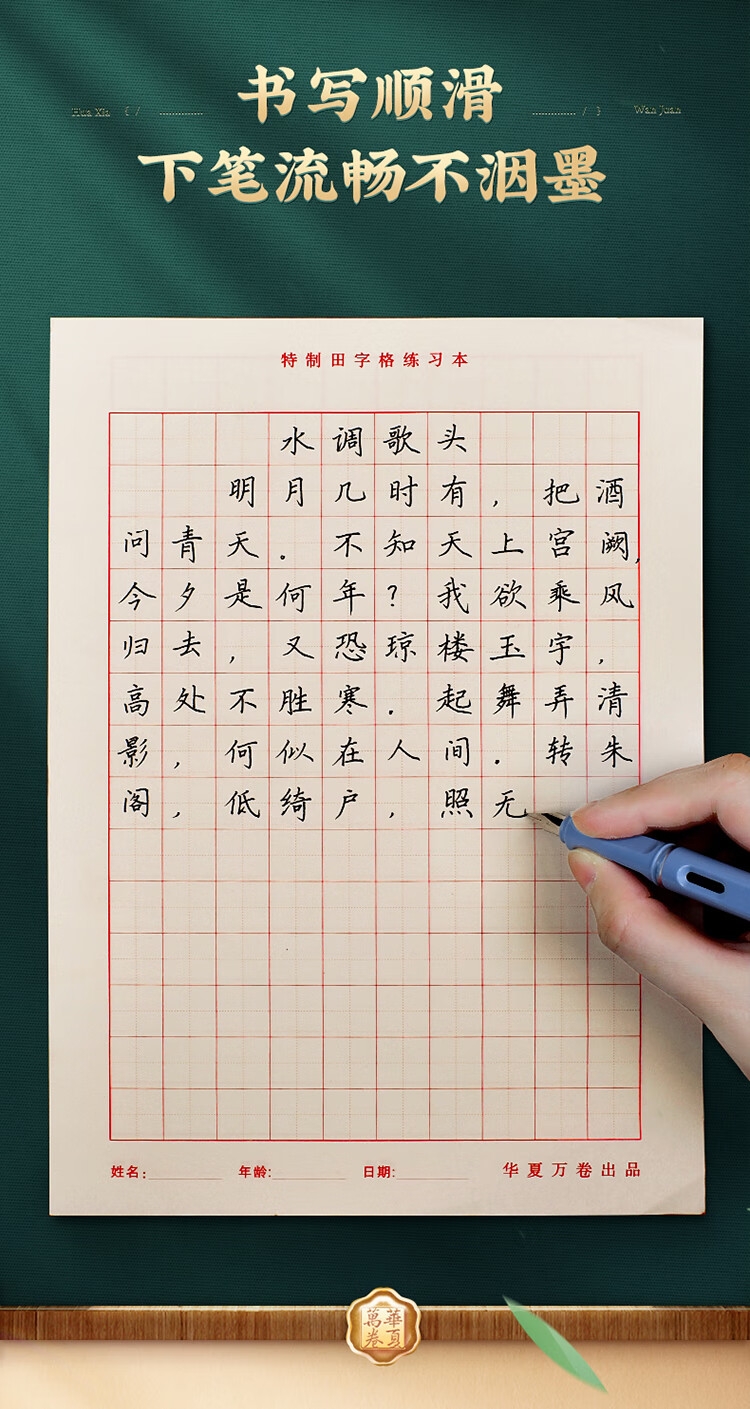 书写顺滑
Hua Xia
Wan Juan
下笔流畅不洇墨
特制田字格练习本
水调歌头
明月几时有，把酒
问青天。不知天上宫阙，
今夕是何年？我欲乘风
归去，又恐琼楼玉宇，
高处不胜寒．起舞弄清
影，何似在人间．转朱
阁，低绮户，照无
姓名：
年龄：
日期：
华夏万卷出品
華夏萬卷